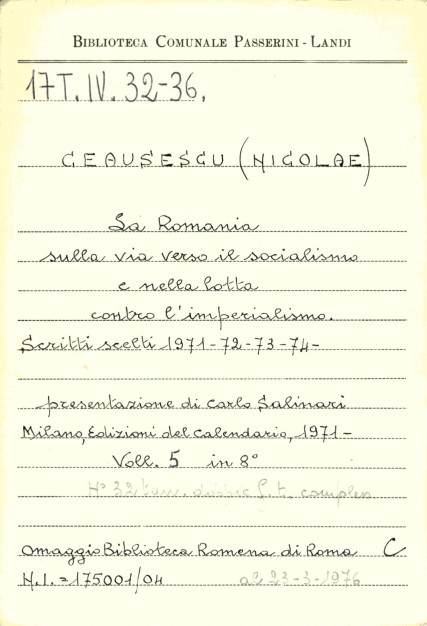 BIBLIOTECA COMUNALE PASSERINI - LANDI
17 T. IV. 32-36.
CEAUSESCU (NICOLAE)
La Romania
sulla via verso il socialismo
e nella lotta
contro l'imperialismo.
Scritti scelti 1971-72-73-74-
presentazione di Carlo Salinari
Milano, Edizioni del Calendario, 1971-
Voll. 5 in 8°
N° 32 doppio
Omaggio Biblioteca Romena di Roma C
N.I. = 175001/04 al 23-3-1976